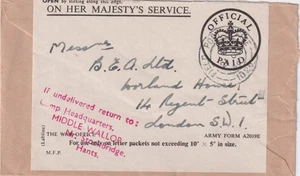 OPEN by slitting along this edge.
ON HER MAJESTY'S SERVICE.
OFFICIAL
PAID
Messrs
B.E.A. Ltd.
Dorland House
14 Regent Street
London S.W.1.
If undelivered return to:
Camp Headquarters,
MIDDLE WALLOP
Stockbridge,
Hants.
THE WAR OFFICE
ARMY FORM A2039E
For use only on letter packets not exceeding 10" × 5" in size.
M.F.P.